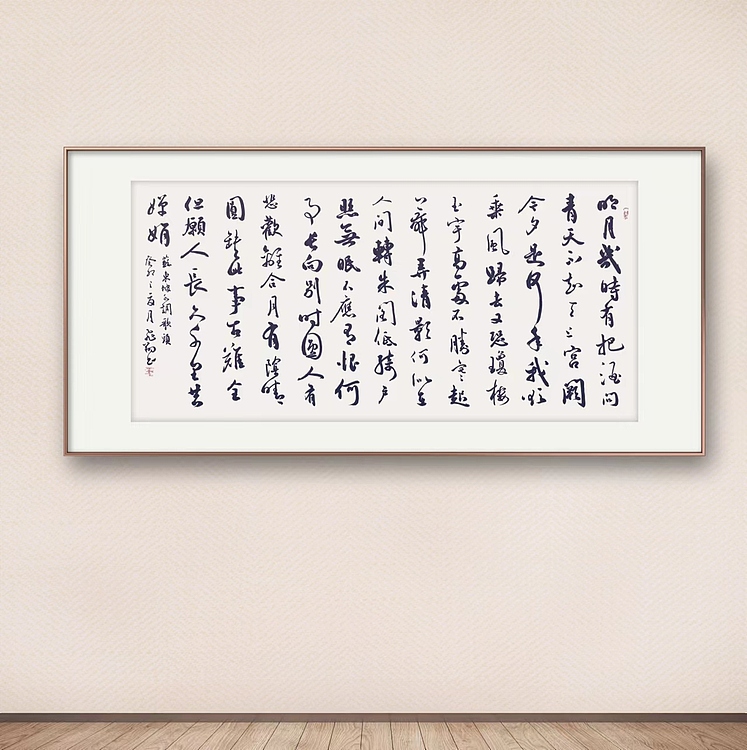 明月幾時有把酒問
青天不知天上宮闕
今夕是何年我欲
乘風歸去又恐瓊樓
玉宇高處不勝寒起
舞弄清影何似在
人間轉朱閣低綺戶
照無眠不應有恨何
事長向別時圓人有
悲歡離合月有陰晴
圓缺此事古難全
但願人長久千里共
嬋娟
蘇東坡水調歌頭
癸卯